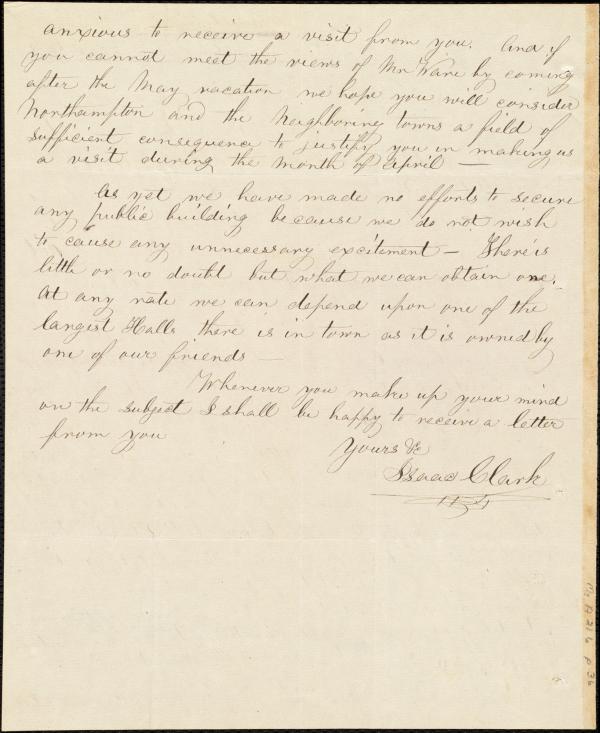 anxious to receive a visit from you. And if
you cannot meet the views of Mr Ware by coming
after the May vacation we hope you will consider
Northampton and the neighboring towns a field of
sufficient consequence to justify you in making us
a visit during the month of April —
As yet we have made no efforts to secure
any public building because we do not wish
to cause any unnecessary excitement — There is
little or no doubt but what we can obtain one.
At any rate we can depend upon one of the
largist Halls there is in town as it is owned by
one of our friends —
Whenever you make up your mind
on the subject I shall be happy to receive a letter
from you
Yours &c
Isaac Clark